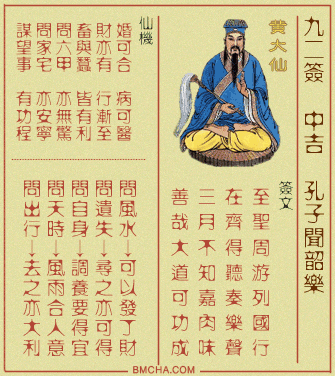 九二簽 中吉 孔子聞韶樂
黄大仙
簽文
至聖周游列國行
在齊得聽奏樂聲
三月不知嘉肉味
善哉大道可功成
仙機
婚可合 病可醫
財亦有 行漸至
畜與蠶 皆有利
問六甲 亦無驚
問家宅 亦安寧
謀望事 有功程
問風水→可以發了財
問遺失→尋之亦可得
問自身→調養要得宜
問天時→風雨合人意
問出行→去之亦大利
BMCHA.COM